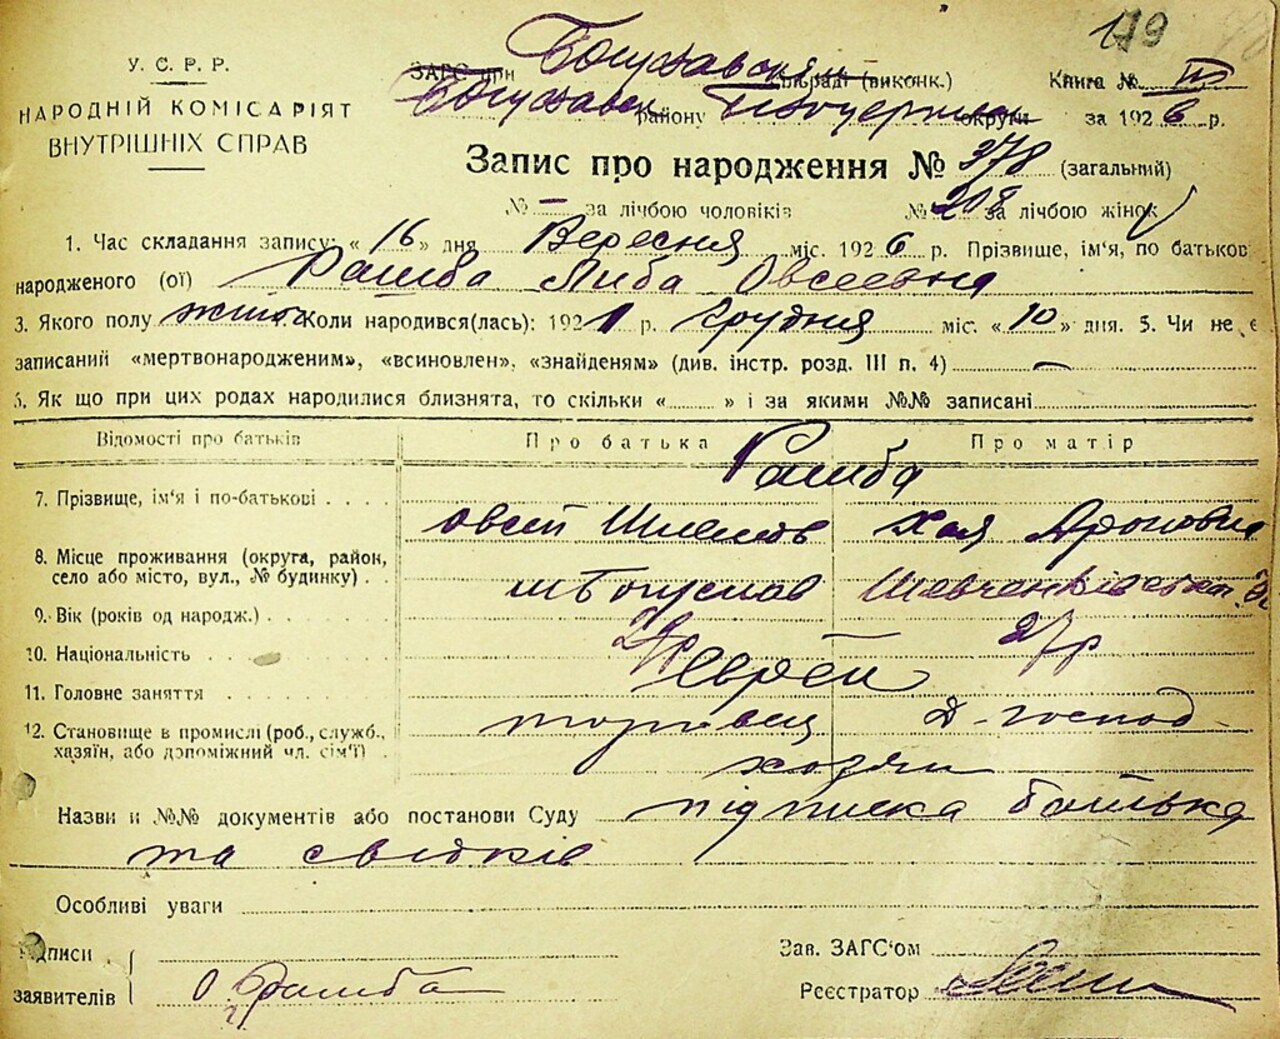 179
У. С. Р. Р.
НАРОДНІЙ КОМІСАРІЯТ
ВНУТРІШНІХ СПРАВ
ЗАГС при Богуславськ сільраді (виконк.) Книга № III
Богуславськ району Білоцерків округи за 1926 р.
Запис про народження № 378 (загальний)
№ — за лічбою чоловіків № 208 за лічбою жінок
1. Час складання запису: «16» дня Вересня міс. 1926 р. Прізвище, ім'я, по батьков
народженого (ої) Рашба Либа Овсеевна
3. Якого полу жіноч. Коли народився(лась): 1921 р. Грудня міс. «10» дня. 5. Чи не є
записаний «мертвонародженим», «всиновлен», «знайденям» (див. інстр. розд. III п. 4) —
6. Як що при цих родах народилися близнята, то скільки « » і за якими №№ записані
Відомості про батьків Про батька Про матір
Рашба
7. Прізвище, ім'я і по-батькові
Овсей Шлемов Хая Ароновна
8. Місце проживання (округа, район,
село або місто, вул., № будинку)
м Богуслав Шевченківська
9. Вік (років од народж.) 27р
10. Національність еврей
11. Головне заняття торговец д-господ
12. Становище в промислі (роб., служб.,
хазяїн, або допоміжний чл. сім'ї)
хозяин
Назви и №№ документів або постанови Суду підписка батька
та свідків
Особливі уваги
Підписи
заявителів О Рашба
Зав. ЗАГС'ом
Реєстратор